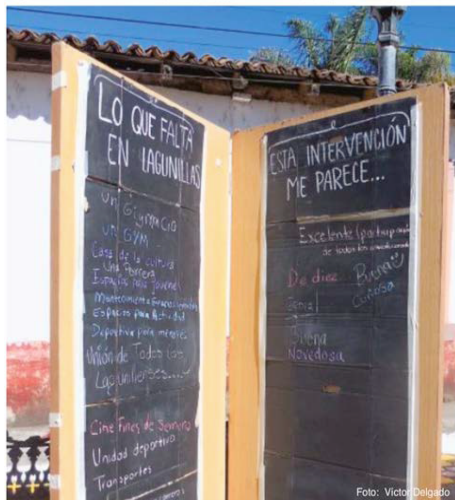 LO QUE FALTA
EN LAGUNILLAS
un Giymnacio
un GYM
Casa de la cultura
Una
Espacios para jovenes
Mantenimiento
Espacios para Actividad
Deportiva para
Unión de Todos los
Lagunillenses
Cine Fines de Semana
Unidad deportiva
Transportes
ESTA INTERVENCIÓN
ME PARECE...
Excelente
de todos los
De diez
Buena
Curiosa
Buena
Novedosa
Foto: Víctor Delgado